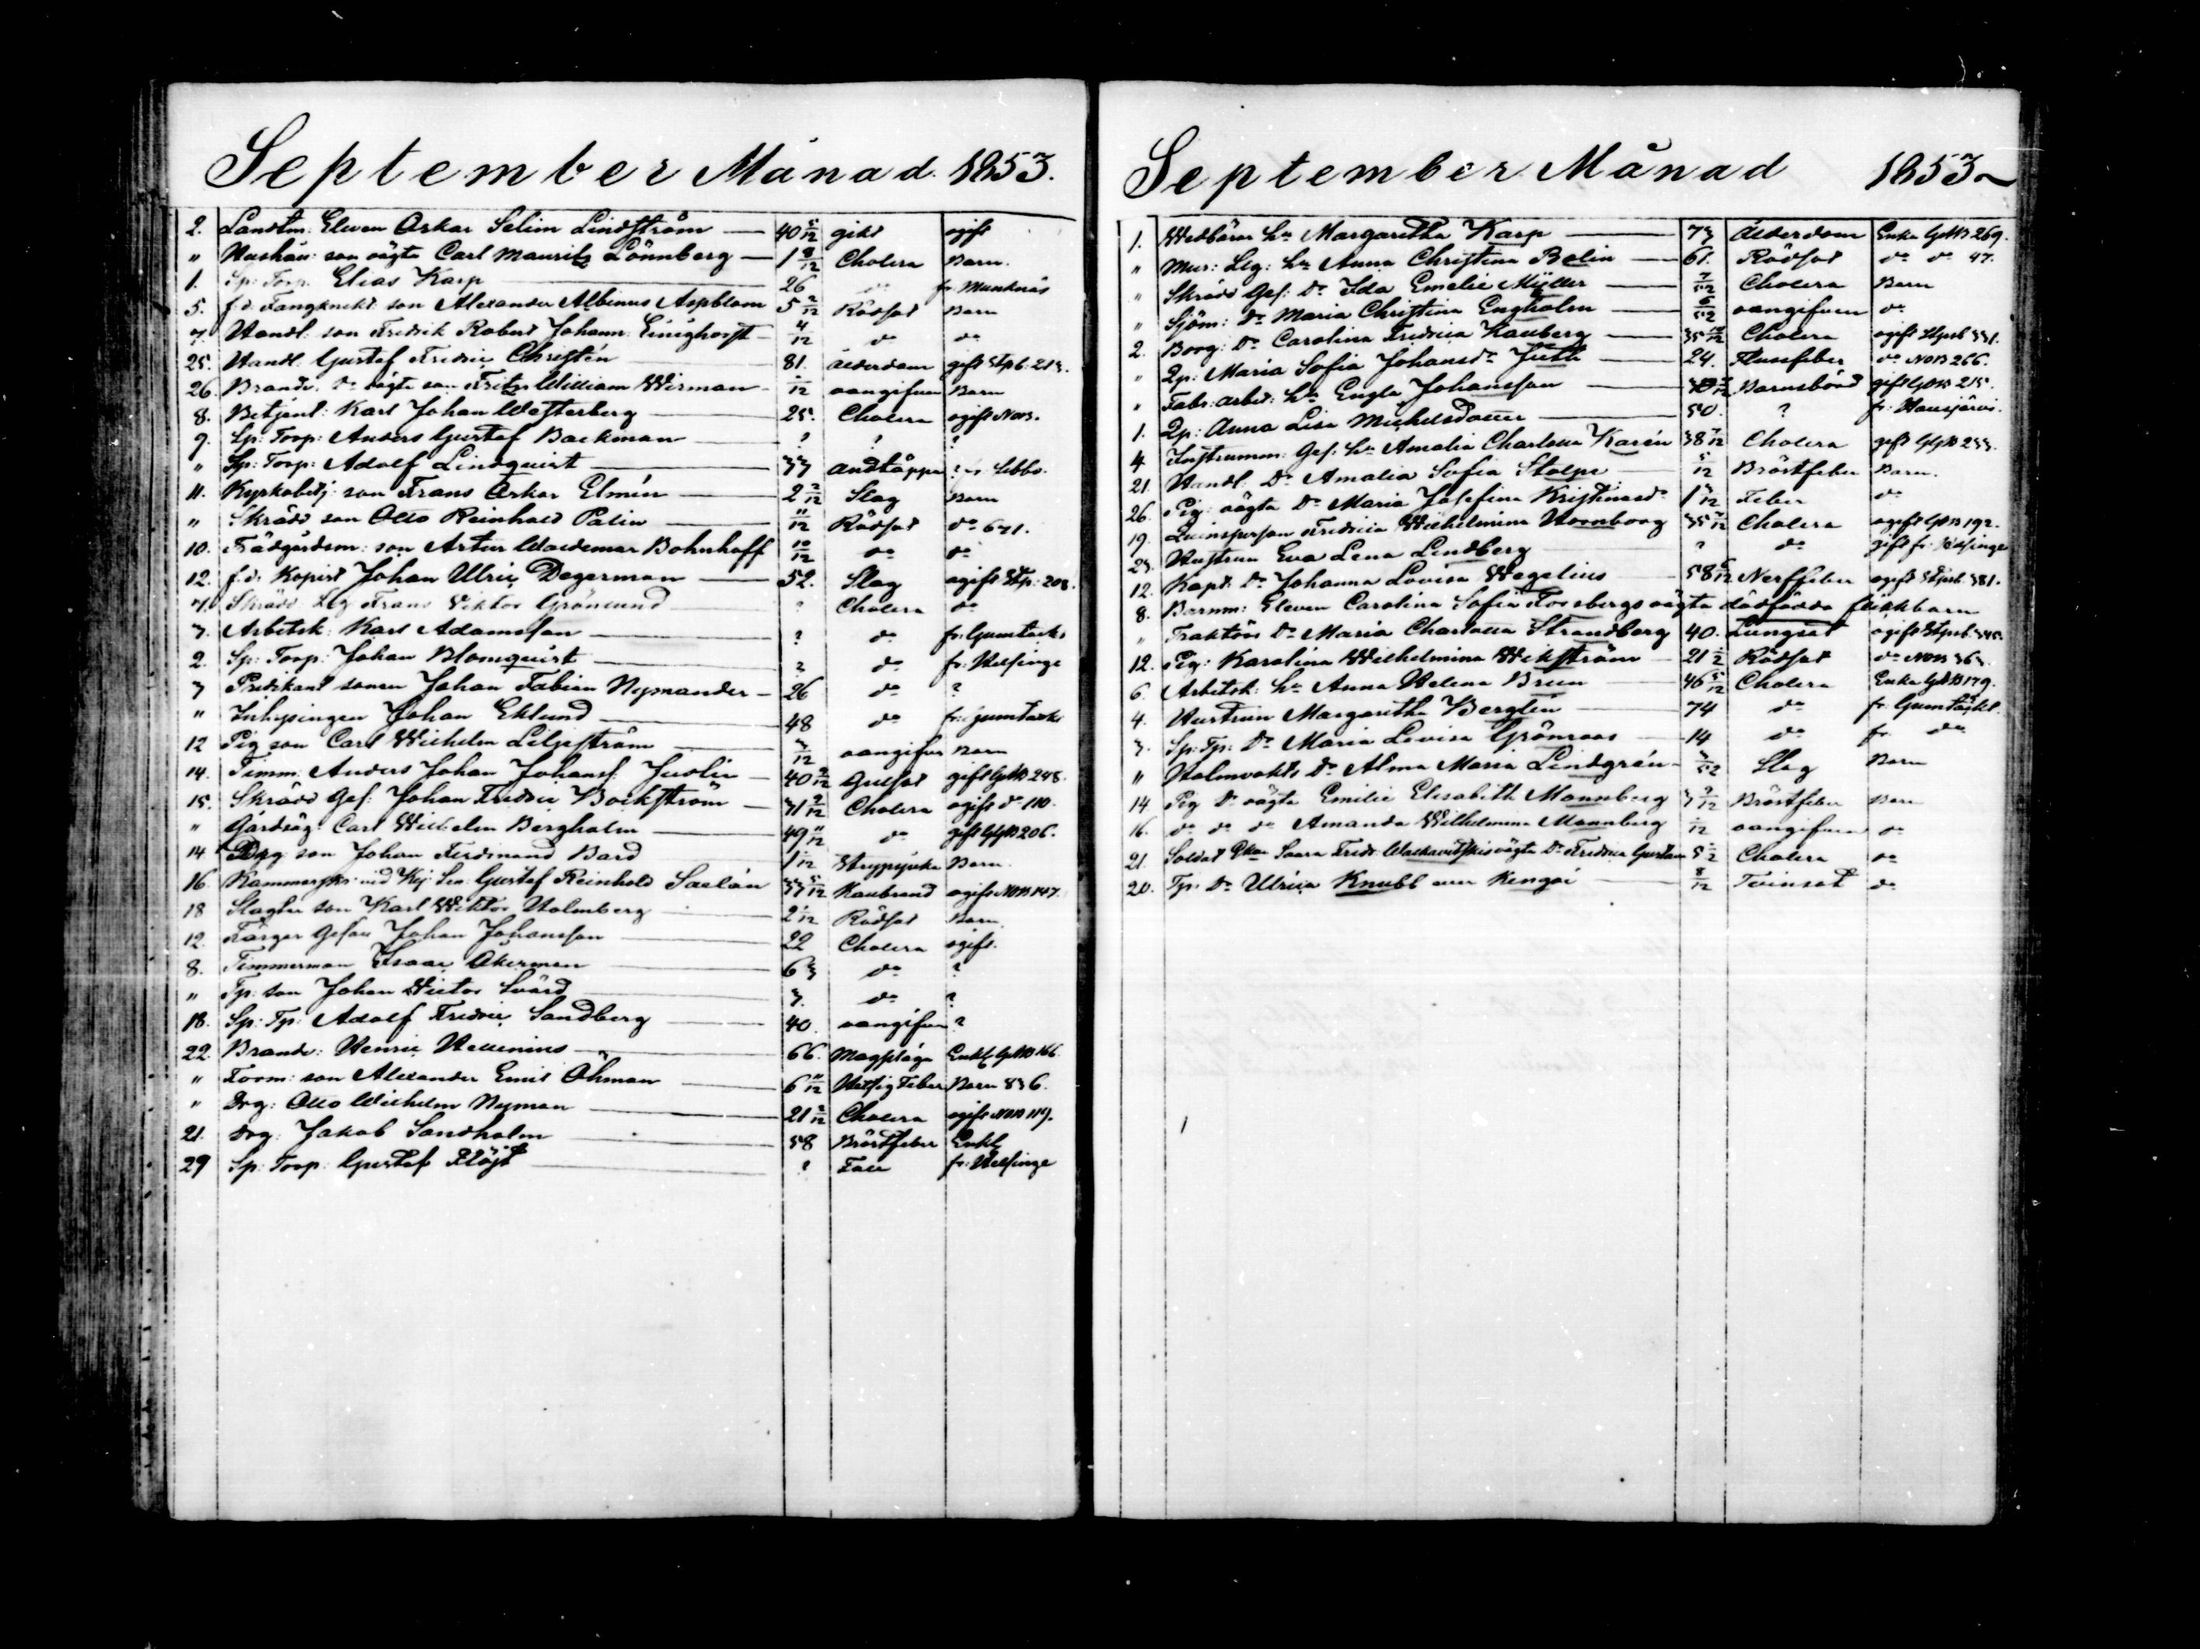 September Månad. 1853.
2. Landtm. Eleven Oskar Selim Lindström — 40 5/12 gikt ogift
" Hushåll: son oägta Carl Maurits Lönnberg — 1 8/12 Cholera Barn.
1. Sp: Torp. Elias Karp 26 do fr Munknäs
5. f.d. Fångknekt son Alexander Albinus Aspblom 5 2/12 Rödsot Barn
7. Handl. son Fredrik Robert Johann 4/12 do do
25. Handl. Gustaf Fredric Christén 81. ålderdom gift Stpb. 213.
26. Brandv. do oägta son Fritz William Wirman /12 oangifven Barn
8. Betjent: Karl Johan Westerberg 25. Cholera ogift
9. Sp: Torp: Anders Gustaf Backman ? ? ?
" Sp: Torp: Adolf Lindquist 33 andtäppa ? Sibbo.
11. Kyrkobetj: son Frans Oskar Elmén 2 2/12 Slag Barn
" Skrädd son Otto Reinhold Palin 11/12 Rödsot do 671.
10. Trädgårdsm: son Artur Waldemar Bohnhoff 10/12 do do
12. f.d. Kopist Johan Ulric Degerman 52. Slag ogift Stp: 208.
7. Skrädd Lg Frans Viktor Grönlund ? Cholera do
3. Arbetsk: Karl Adamsson ? do fr: Gumtackt
2. Sp: Torp: Johan Blomquist ? do fr. Helsinge
3 Predikant sonen Johan Fabian Nymander — 26 do ?
" Inhysingen Johan Eklund 48 do fr: Gumtackt
12 Pig son Carl Wilhelm Liljeström 3/12 oangifven Barn
14. Timm: Anders Johan Johansf: Juslin — 40 9/12 Gulsot gift GplB 248.
15. Skrädd Ges: Johan Fredric Bockström — 31 9/12 Cholera ogift do 110.
" Gårdsäg: Carl Wilhelm Bergholm 49 11/12 do gift GplB 206.
14 Drg son Johan Ferdinand Bard 1 /12 Strypsjuka Barn
16. Kammarskr: vid Kej: Sen: Gustaf Reinhold Saelán 33 5/12 Kallbrand ogift NOB 147.
18 Slagtar son Karl Wiktor Holmberg 2 1/12 Rödsot Barn
12. Färgar Gesäll Johan Johansson 22 Cholera ogift.
8. Timmerman Isaac Åkerman 63 do ?
" Tp: son Johan Wictor Svärd 3. do ?
18. Sp: Tp: Adolf Fredric Sandberg 40. oangifven ?
22. Brandv: Henric Hellenius 66. Magplåga Enkl GplB 166
" Form: son Alexander Emil Öhman 6 11/12 Hetsig Feber Barn 836.
" Drg: Otto Wilhelm Nyman 21 2/12 Cholera ogift NOB 119.
21. Drg: Jakob Sandholm 58 Bröstfeber Enkl
29 Sp: Torp: Gustaf Flöjt ? Fall fr: Helsinge
September Månad 1853
1. Wedbärar Ha Margaretha Karp 73 ålderdom Enka GplB 269.
" Mur: Lg: Ha Anna Christina Belin 61. Rödsot do do 47.
" Skrädd Ges: Dr Ida Emelie Müller 7/52 Cholera Barn
" Sjöm: Dr Maria Christina Engholm 6/52 oangifven do
2. Borg: Dr Carolina Fredrica Kauberg 35 10/12 Cholera ogift Stpb 331.
" Qp: Maria Sofia Johansdr Juth 24. Flussfeber do NOB 266.
" Fabr: arbet: Ha Engla Johansson Barnsbörd gift GplB 215.
1. Qp: Anna Lisa Michelsdotter 50. ? fr: Hausjärvi.
4 Instrumm: Ges: Ha Amalia Charlotta Karén 38 7/12 Cholera gift GplB 233.
21. Handl. Dr Amalia Sofia Stolpe 5/12 Bröstfeber Barn.
26. Pig: oägta Dr Maria Josefina Kristinasdr 1 3/12 Feber do
19. Qvinsperson Fredrica Wilhelmina Hornborg 35 7/12 Cholera ogift GplB 192.
23. Hustrun Eva Lena Lindberg ? do gift fr. Helsinge
12. Kapt: Dr Johanna Lovisa Wegelius 58 6/12 Nerffeber ogift Stpb 381.
8. Barnm: Eleven Carolina Sofia Forsbergs oägta dödfödda flickbarn
" Traktörs Dr Maria Charlotta Strandberg 40. Lungsot ogift Stpb 345.
12. Pig: Karolina Wilhelmina Wikström 21 /2 Rödsot do NOB 363.
6. Arbetsk: Ha Anna Helena Brun 46 5/12 Cholera Enka GplB 179.
4. Hustrun Margaretha Berglin 74 do fr. Gumtäckt
3. Sp: Tp: Dr Maria Lovisa Grönroos 14 do fr do
" Holmvakts Dr Alma Maria Lindgrén 3/52 Slag Barn
14 Pig Dr oägta Emilie Elisabeth Monnberg 3 9/12 Bröstfeber Barn
16. do do do Amanda Wilhelmina Monnberg /12 oangifven do
21. Soldat Enkan Saara Fredr. oägta Dr Fredrica Gustava 5 /2 Cholera do
20. Tp: Dr Ulrica Knubb eller Kengäi 8/12 Tvinsot do